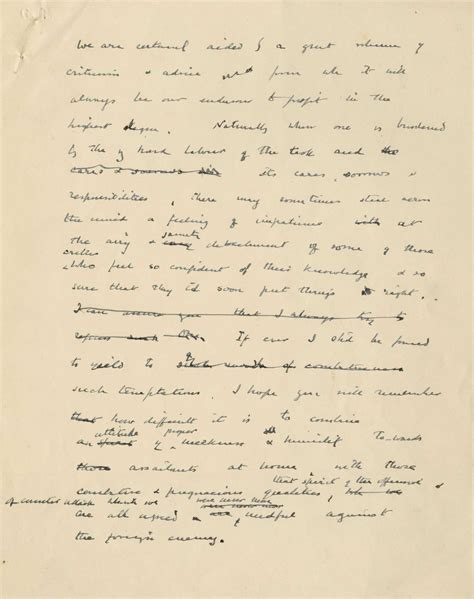 We are certainly aided by a great volume of
criticism & advice from all. It will
always be our endeavour to profit in the
highest degree. Naturally when one is burdened
by the hard labour of the task and the
cares & sorrows its cares, sorrows &
responsibilities, there may sometimes steal across
the mind a feeling of impatience with at
the airy & easy detachment of some of those
critics
who feel so confident of their knowledge & so
sure that they cd soon put things right.
I can assure you that I always try to
repress such If ever I shd be forced
to yield to of combativeness
such temptations, I hope you will remember
that how difficult it is to combine
attitude proper
an spirit of meekness & humility towards
those assailants at home, with those
that spirit of the offensive &
combative & pugnacious qualities,
of counter attack which we were never more
are all agreed needful against
the foreign enemy.